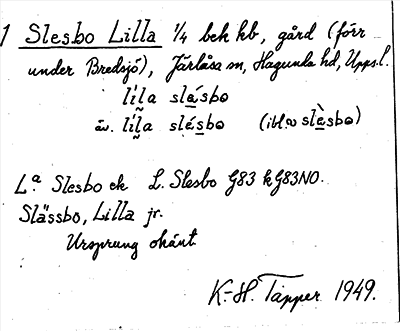 1 Slesbo Lilla 1/4 bek kb, gård (förr
under Bredsjö), Järlåsa sn, Hagunda hd, Upps.l.
lil̰a slásbo
äv. lil̰a slésbo (ibl.∞ slèsbo)
La. Slesbo ek L. Slesbo G83 kG83NO.
Slässbo, Lilla jr.
Ursprung okänt
K.-H. Tapper 1949.